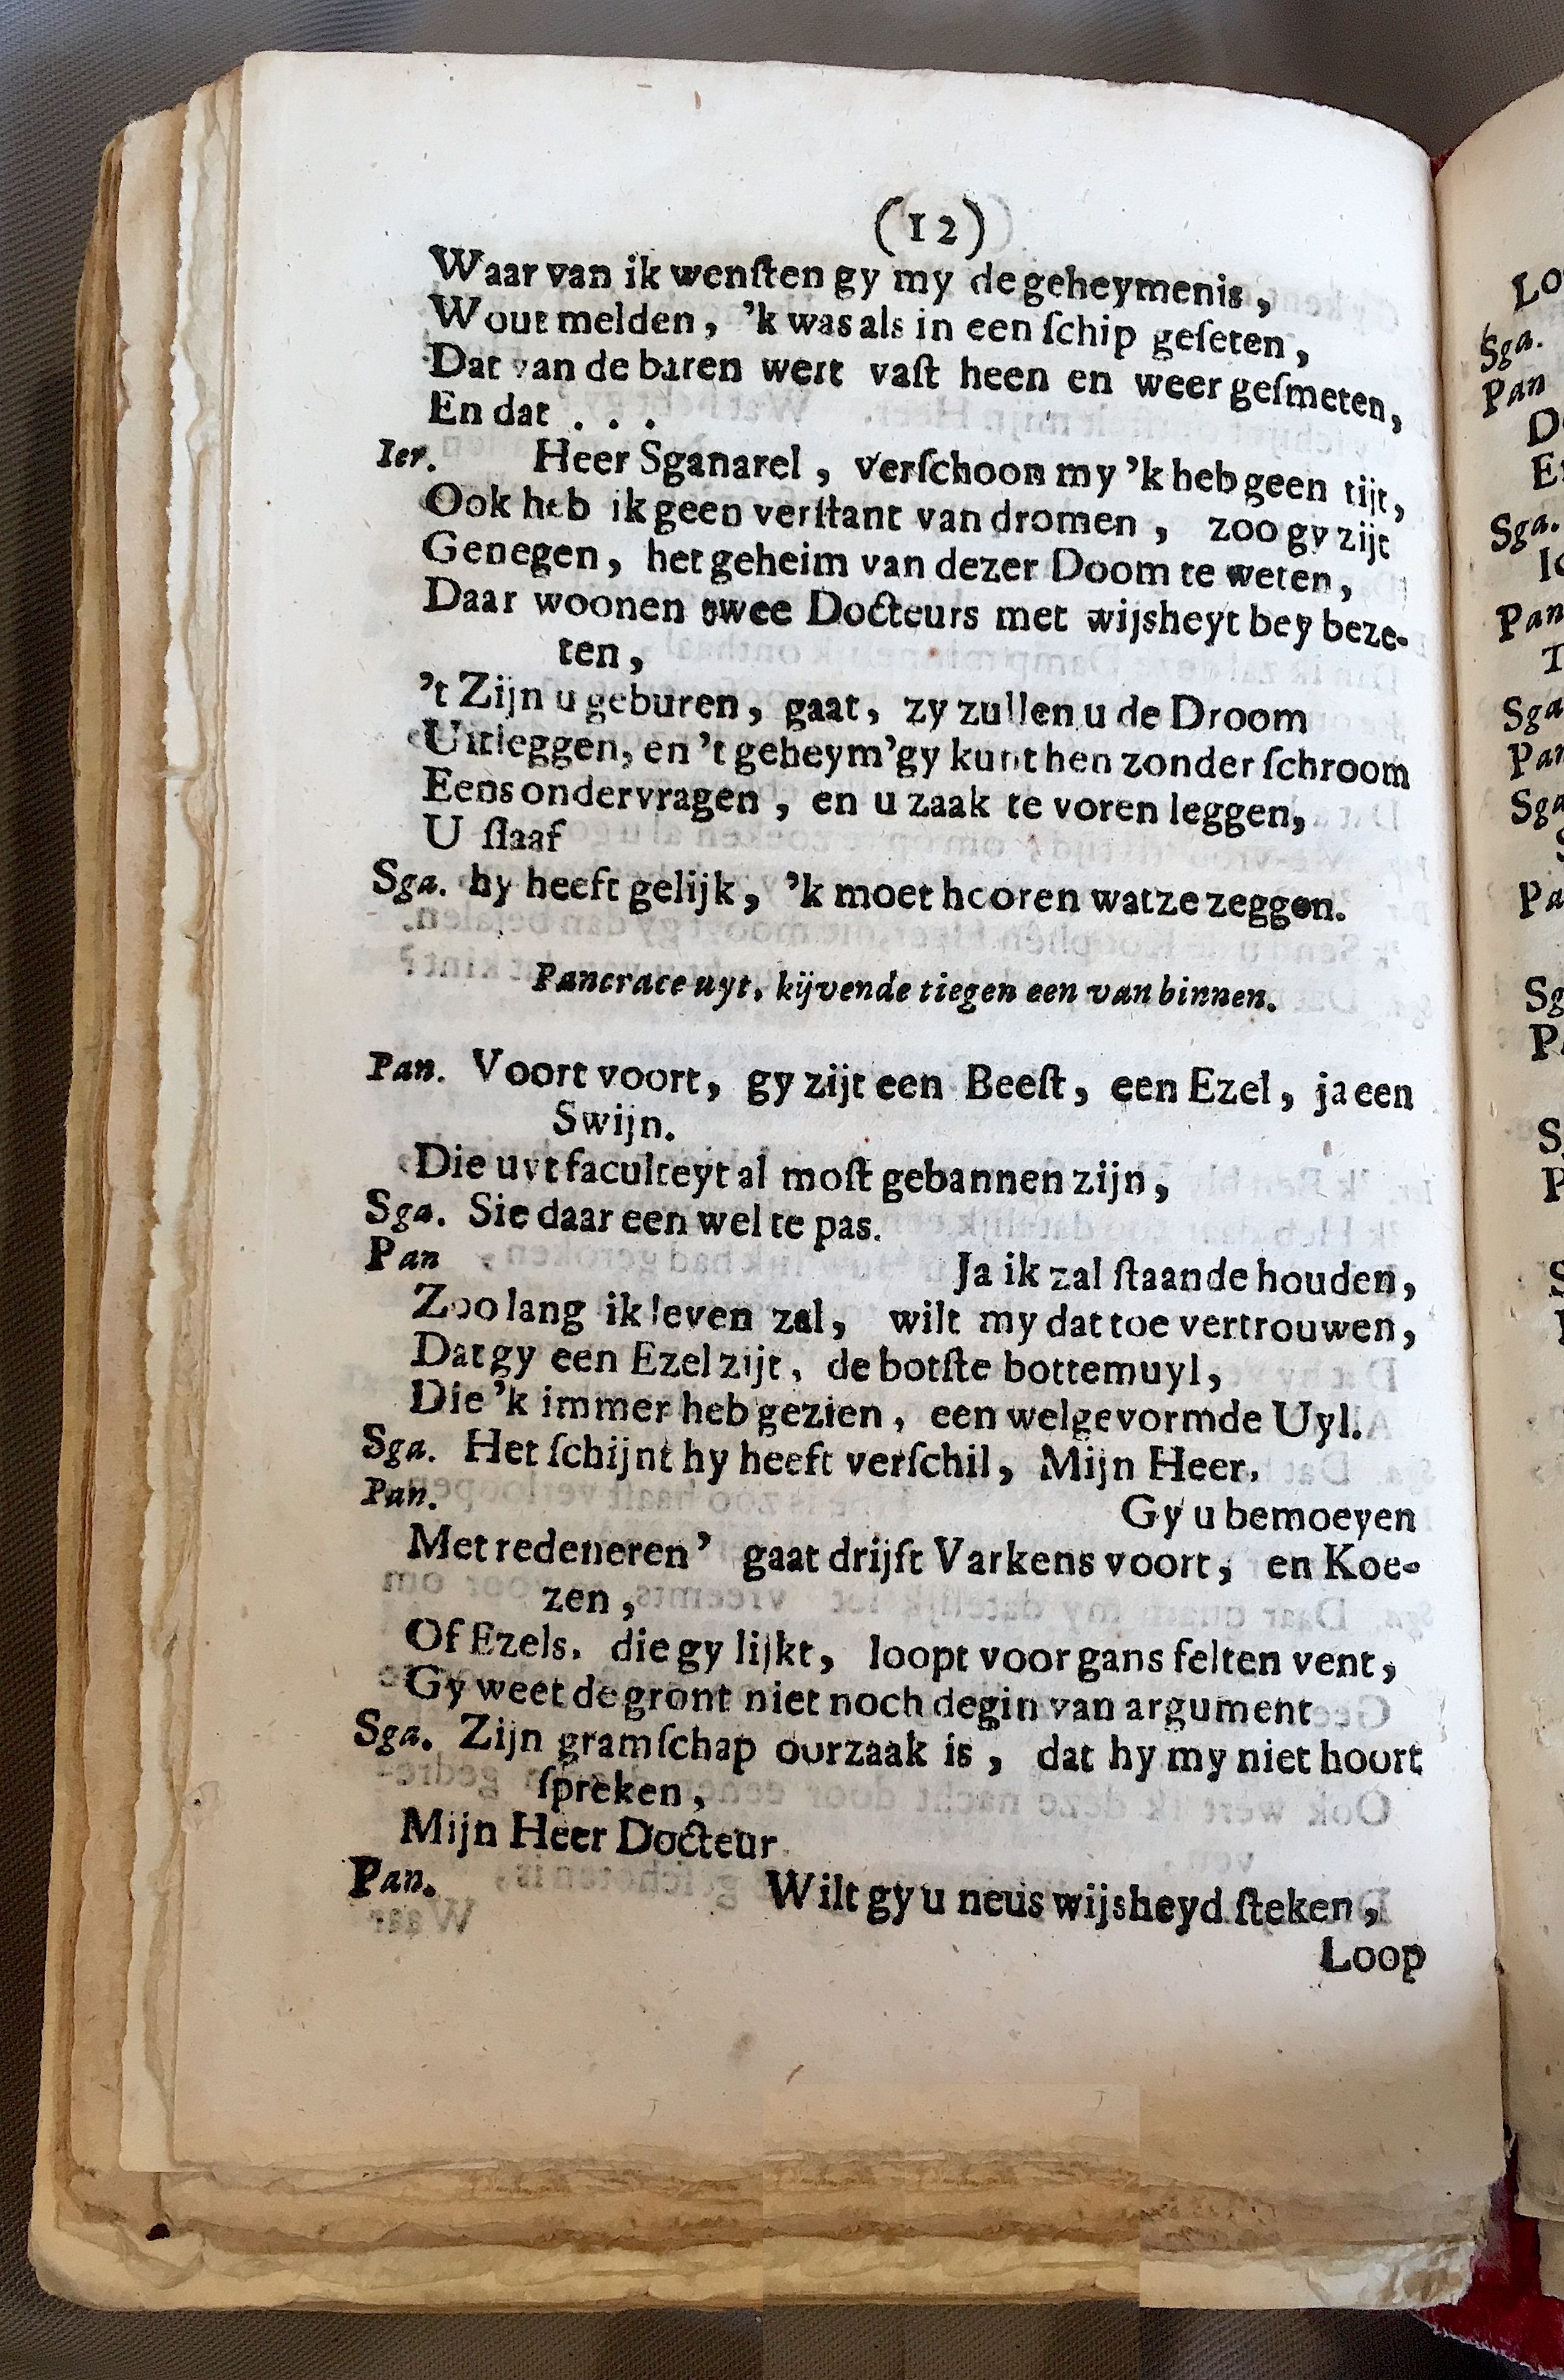 (12)
Waar van ik wenſten gy my de geheymenis,
Wout melden, 'k was als in een ſchip geſeten,
Dat van de baren wert vaſt heen en weer geſmeten,
En dat . . .
Ier. Heer Sganarel, verſchoon my 'k heb geen tijt,
Ook heb ik geen verſtant van dromen, zoo gy zijt
Genegen, het geheim van dezer Doom te weten,
Daar woonen twee Docteurs met wijsheyt bey beze-
ten,
't Zijn u geburen, gaat, zy zullen u de Droom
Uitleggen, en 't geheym' gy kunt hen zonder ſchroom
Eens ondervragen, en u zaak te voren leggen,
U ſlaaf
Sga. hy heeft gelijk, 'k moet hooren wat ze zeggen.
Pancrace uyt, kijvende tiegen een van binnen.
Pan. Voort voort, gy zijt een Beeſt, een Ezel, ja een
Swijn.
Die uyt faculteyt al moſt gebannen zijn,
Sga. Sie daar een wel te pas.
Pan Ja ik zal ſtaande houden,
Zoo lang ik leven zal, wilt my dat toe vertrouwen,
Dat gy een Ezel zijt, de botſte bottemuyl,
Die 'k immer heb gezien, een welgevormde Uyl.
Sga. Het ſchijnt hy heeft verſchil, Mijn Heer.
Pan. Gy u bemoeyen
Met redeneren' gaat drijft Varkens voort, en Koe-
zen,
Of Ezels, die gy lijkt, loopt voor gans felten vent,
Gy weet de gront niet noch degin van argument
Sga. Zijn gramſchap ourzaak is, dat hy my niet hoort
ſpreken,
Mijn Heer Docteur
Pan. Wilt gy u neus wijsheyd ſteken,
Loop
Lo
Sga.
Pan
D
E
Sga.
Pan
Sga
Pan
Sga
Pa
Sg
P
S
P